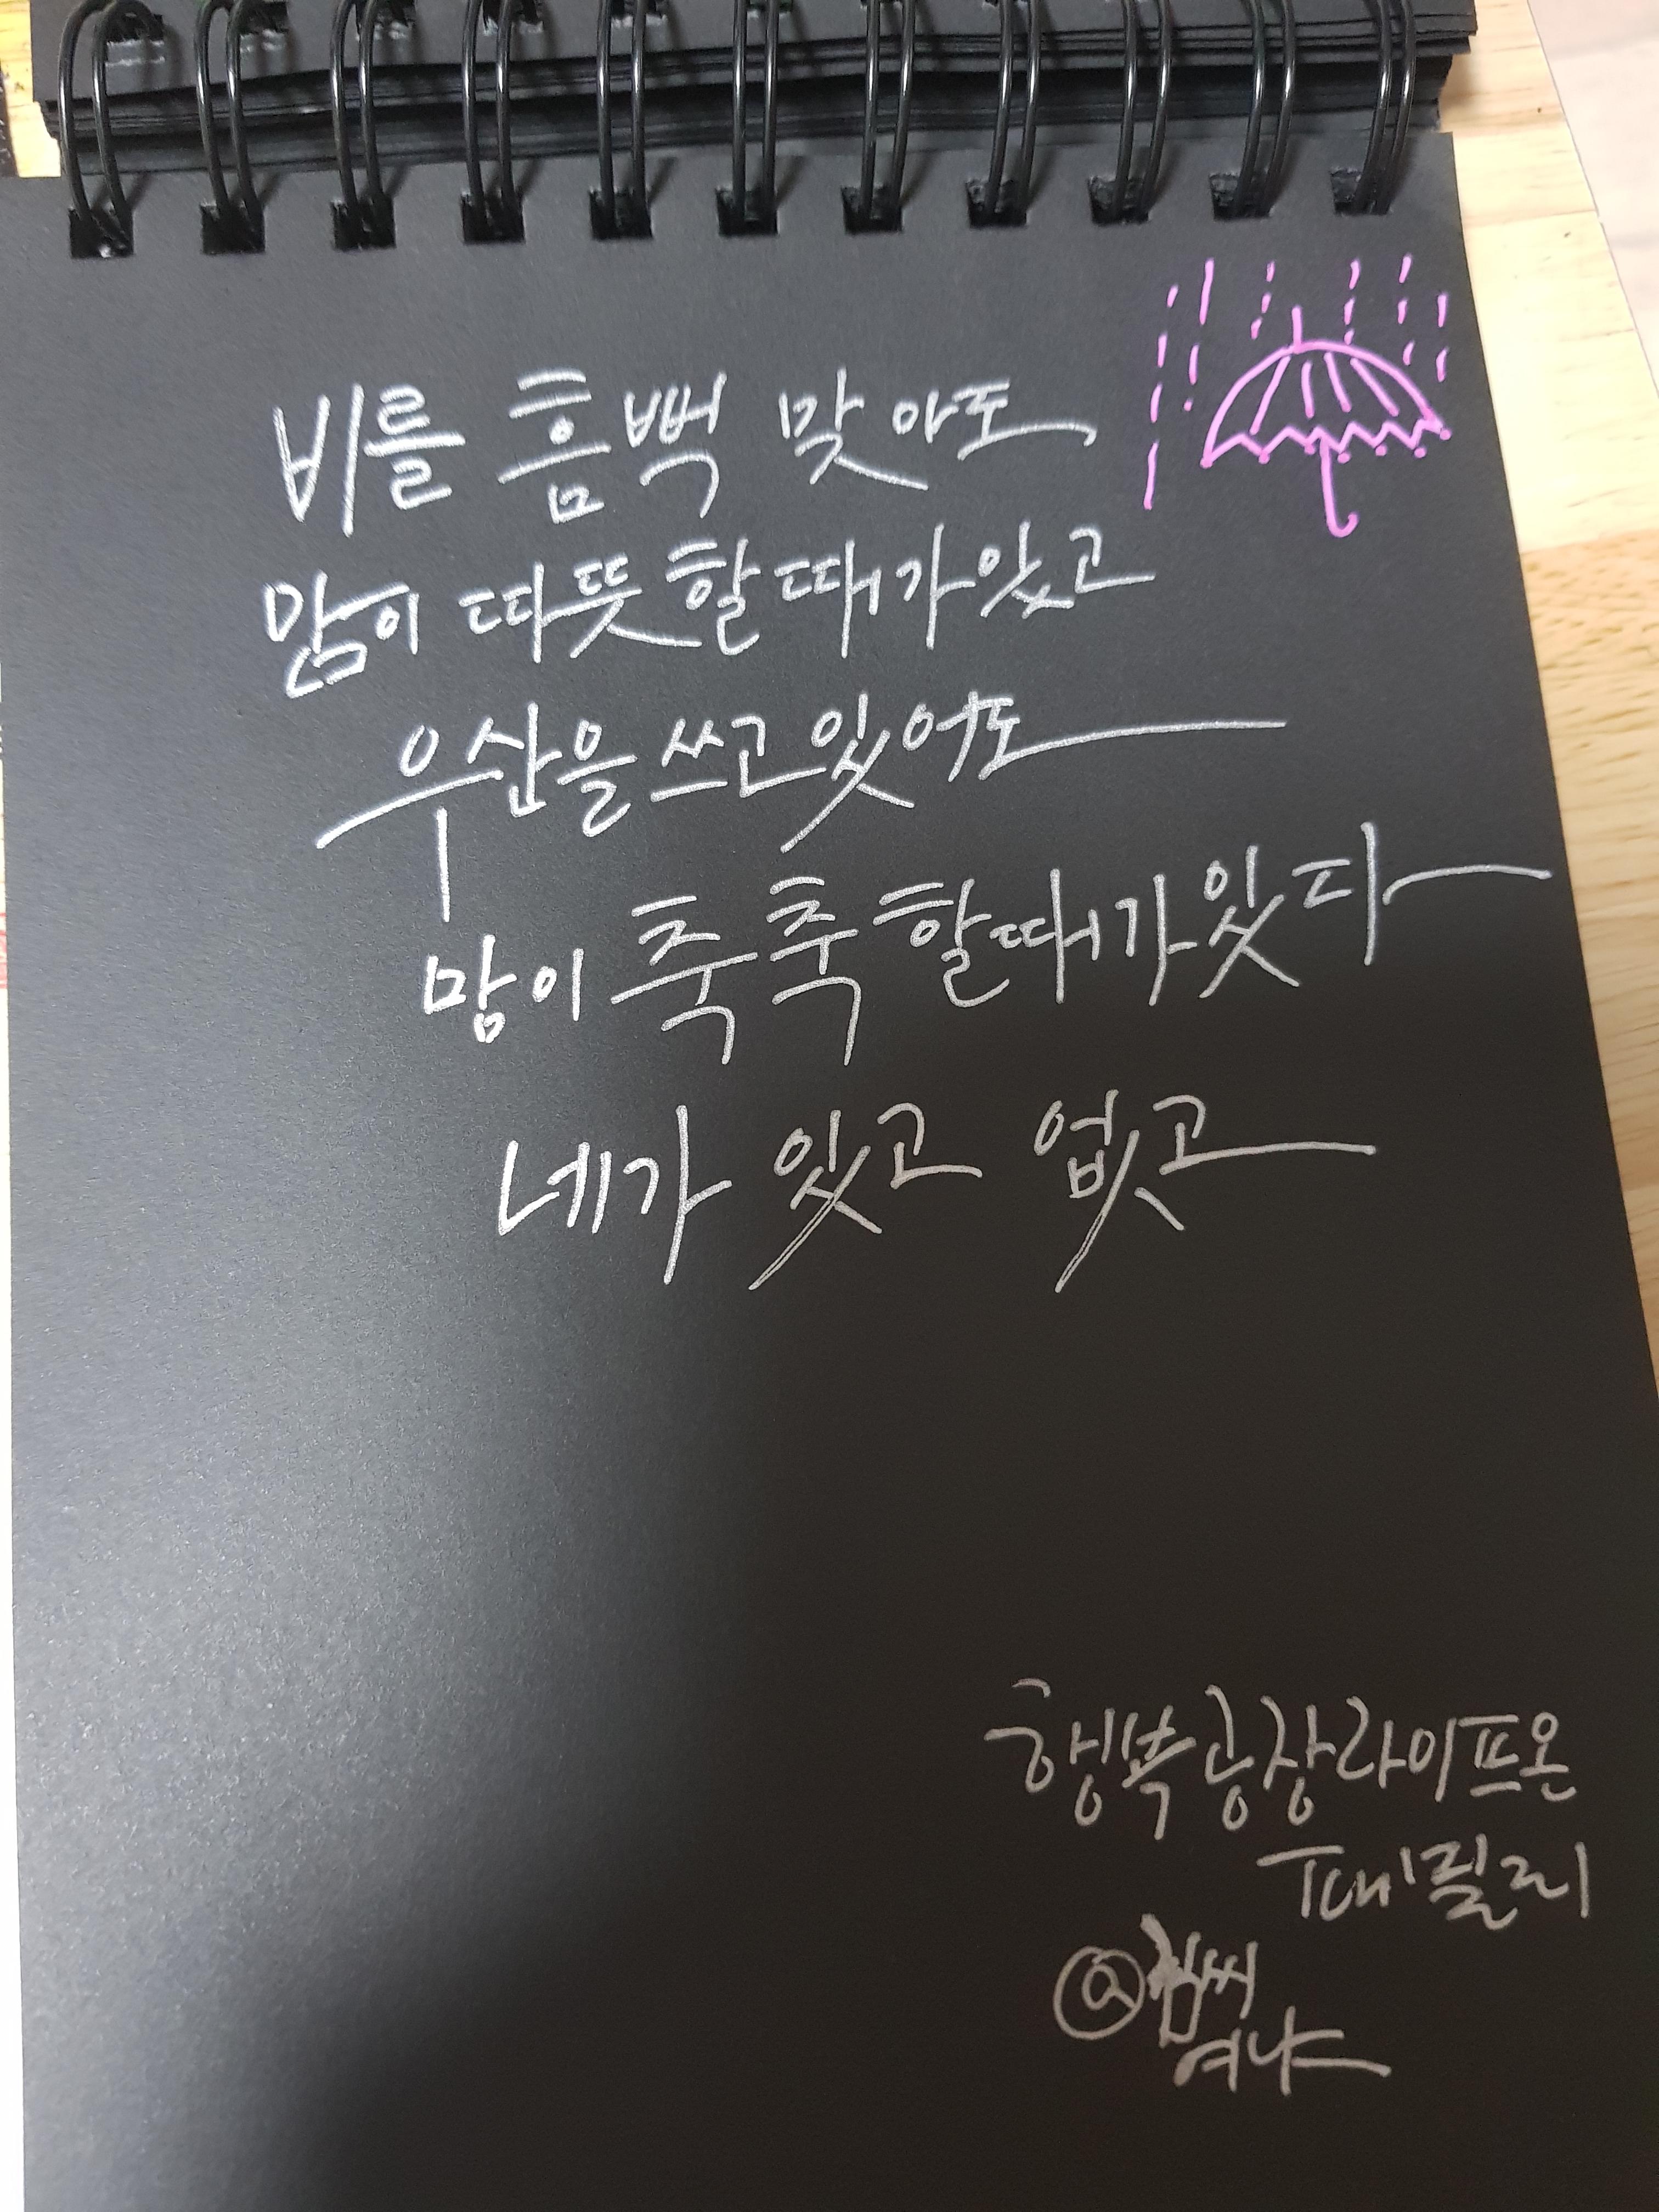 비를 흠뻑 맞아도
맘이 따뜻할 때가 있고
우산을 쓰고 있어도
맘이 축축할 때가 있다
네가 있고 없고
행복공장라이프온
패밀리
@
여나